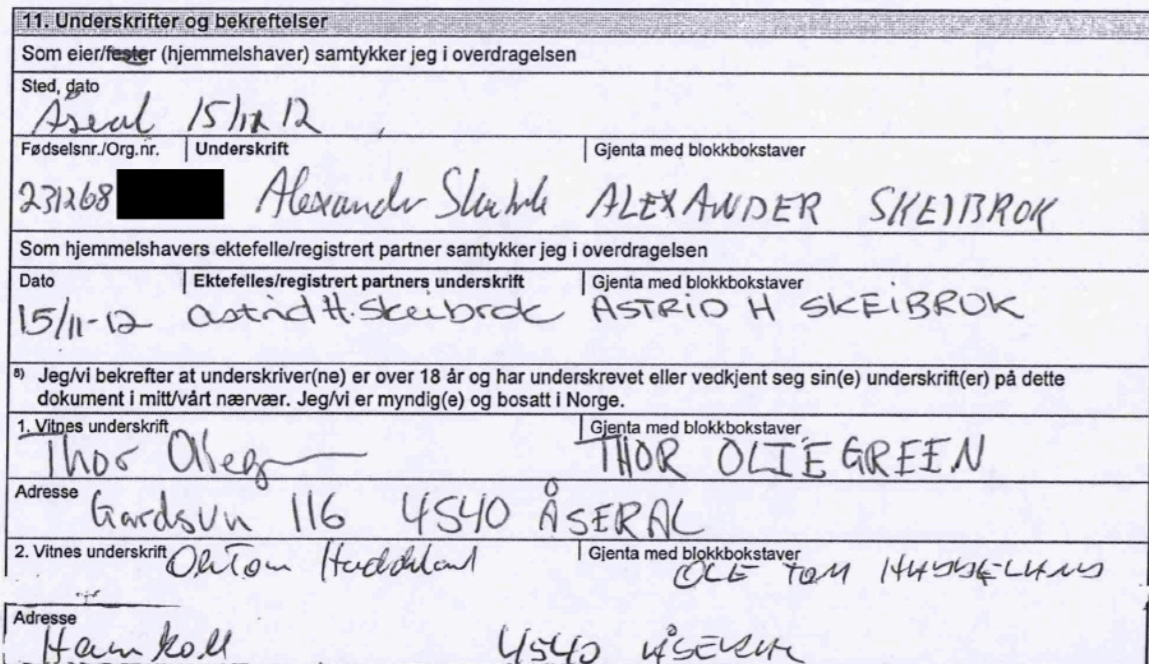 11. Underskrifter og bekreftelser
Som eier/fester (hjemmelshaver) samtykker jeg i overdragelsen
Sted, dato
Åseral 15/11 12
Fødselsnr./Org.nr. Underskrift Gjenta med blokkbokstaver
231268 Alexander ALEXANDER SKEIBROK
Som hjemmelshavers ektefelle/registrert partner samtykker jeg i overdragelsen
Dato Ektefelles/registrert partners underskrift Gjenta med blokkbokstaver
15/11-12 Astrid H. Skeibrok ASTRID H SKEIBROK
8) Jeg/vi bekrefter at underskriver(ne) er over 18 år og har underskrevet eller vedkjent seg sin(e) underskrift(er) på dette
dokument i mitt/vårt nærvær. Jeg/vi er myndig(e) og bosatt i Norge.
1. Vitnes underskrift Gjenta med blokkbokstaver
Thor THOR OLIEGREEN
Adresse
Gardsvn 116 4540 ÅSERAL
2. Vitnes underskrift Gjenta med blokkbokstaver
Ole Tom OLE TOM
Adresse
4540 ÅSERAL